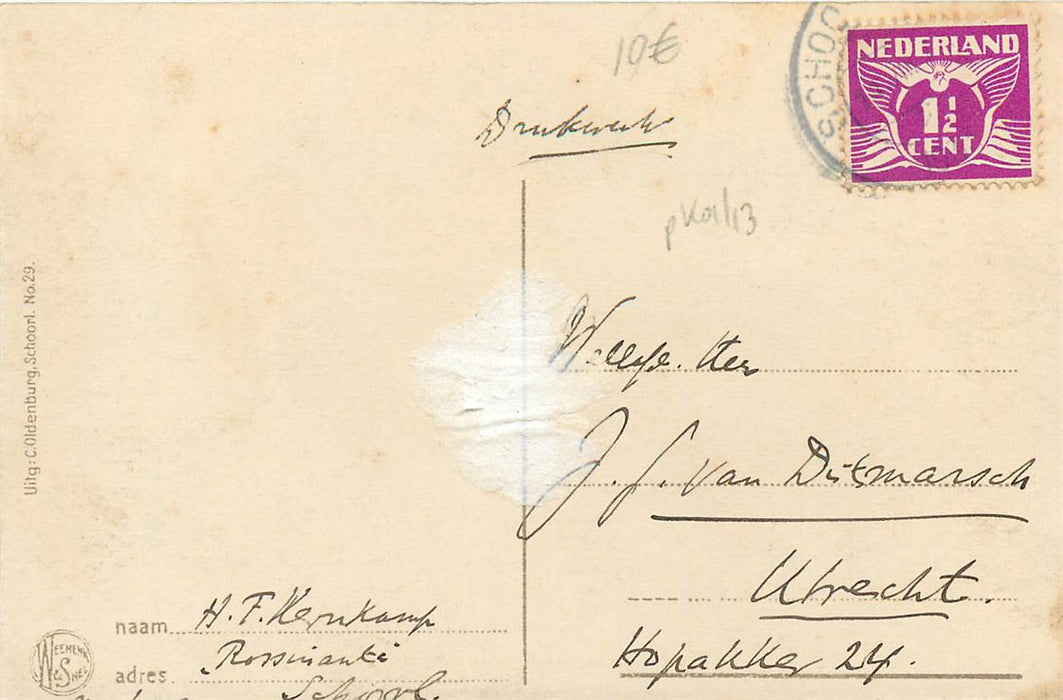 10€
Drukwerk
SCHOO
NEDERLAND
1½
CENT
pK01/13
Uitg: C.Oldenburg.Schoorl. No.29.
Weledg. Heer
J. J. van Ditmarsch
Utrecht.
Hopakker 24.
naam H. F. Kernkamp
adres Rossinanti
Schoorl.
WEEMENK & SNEL